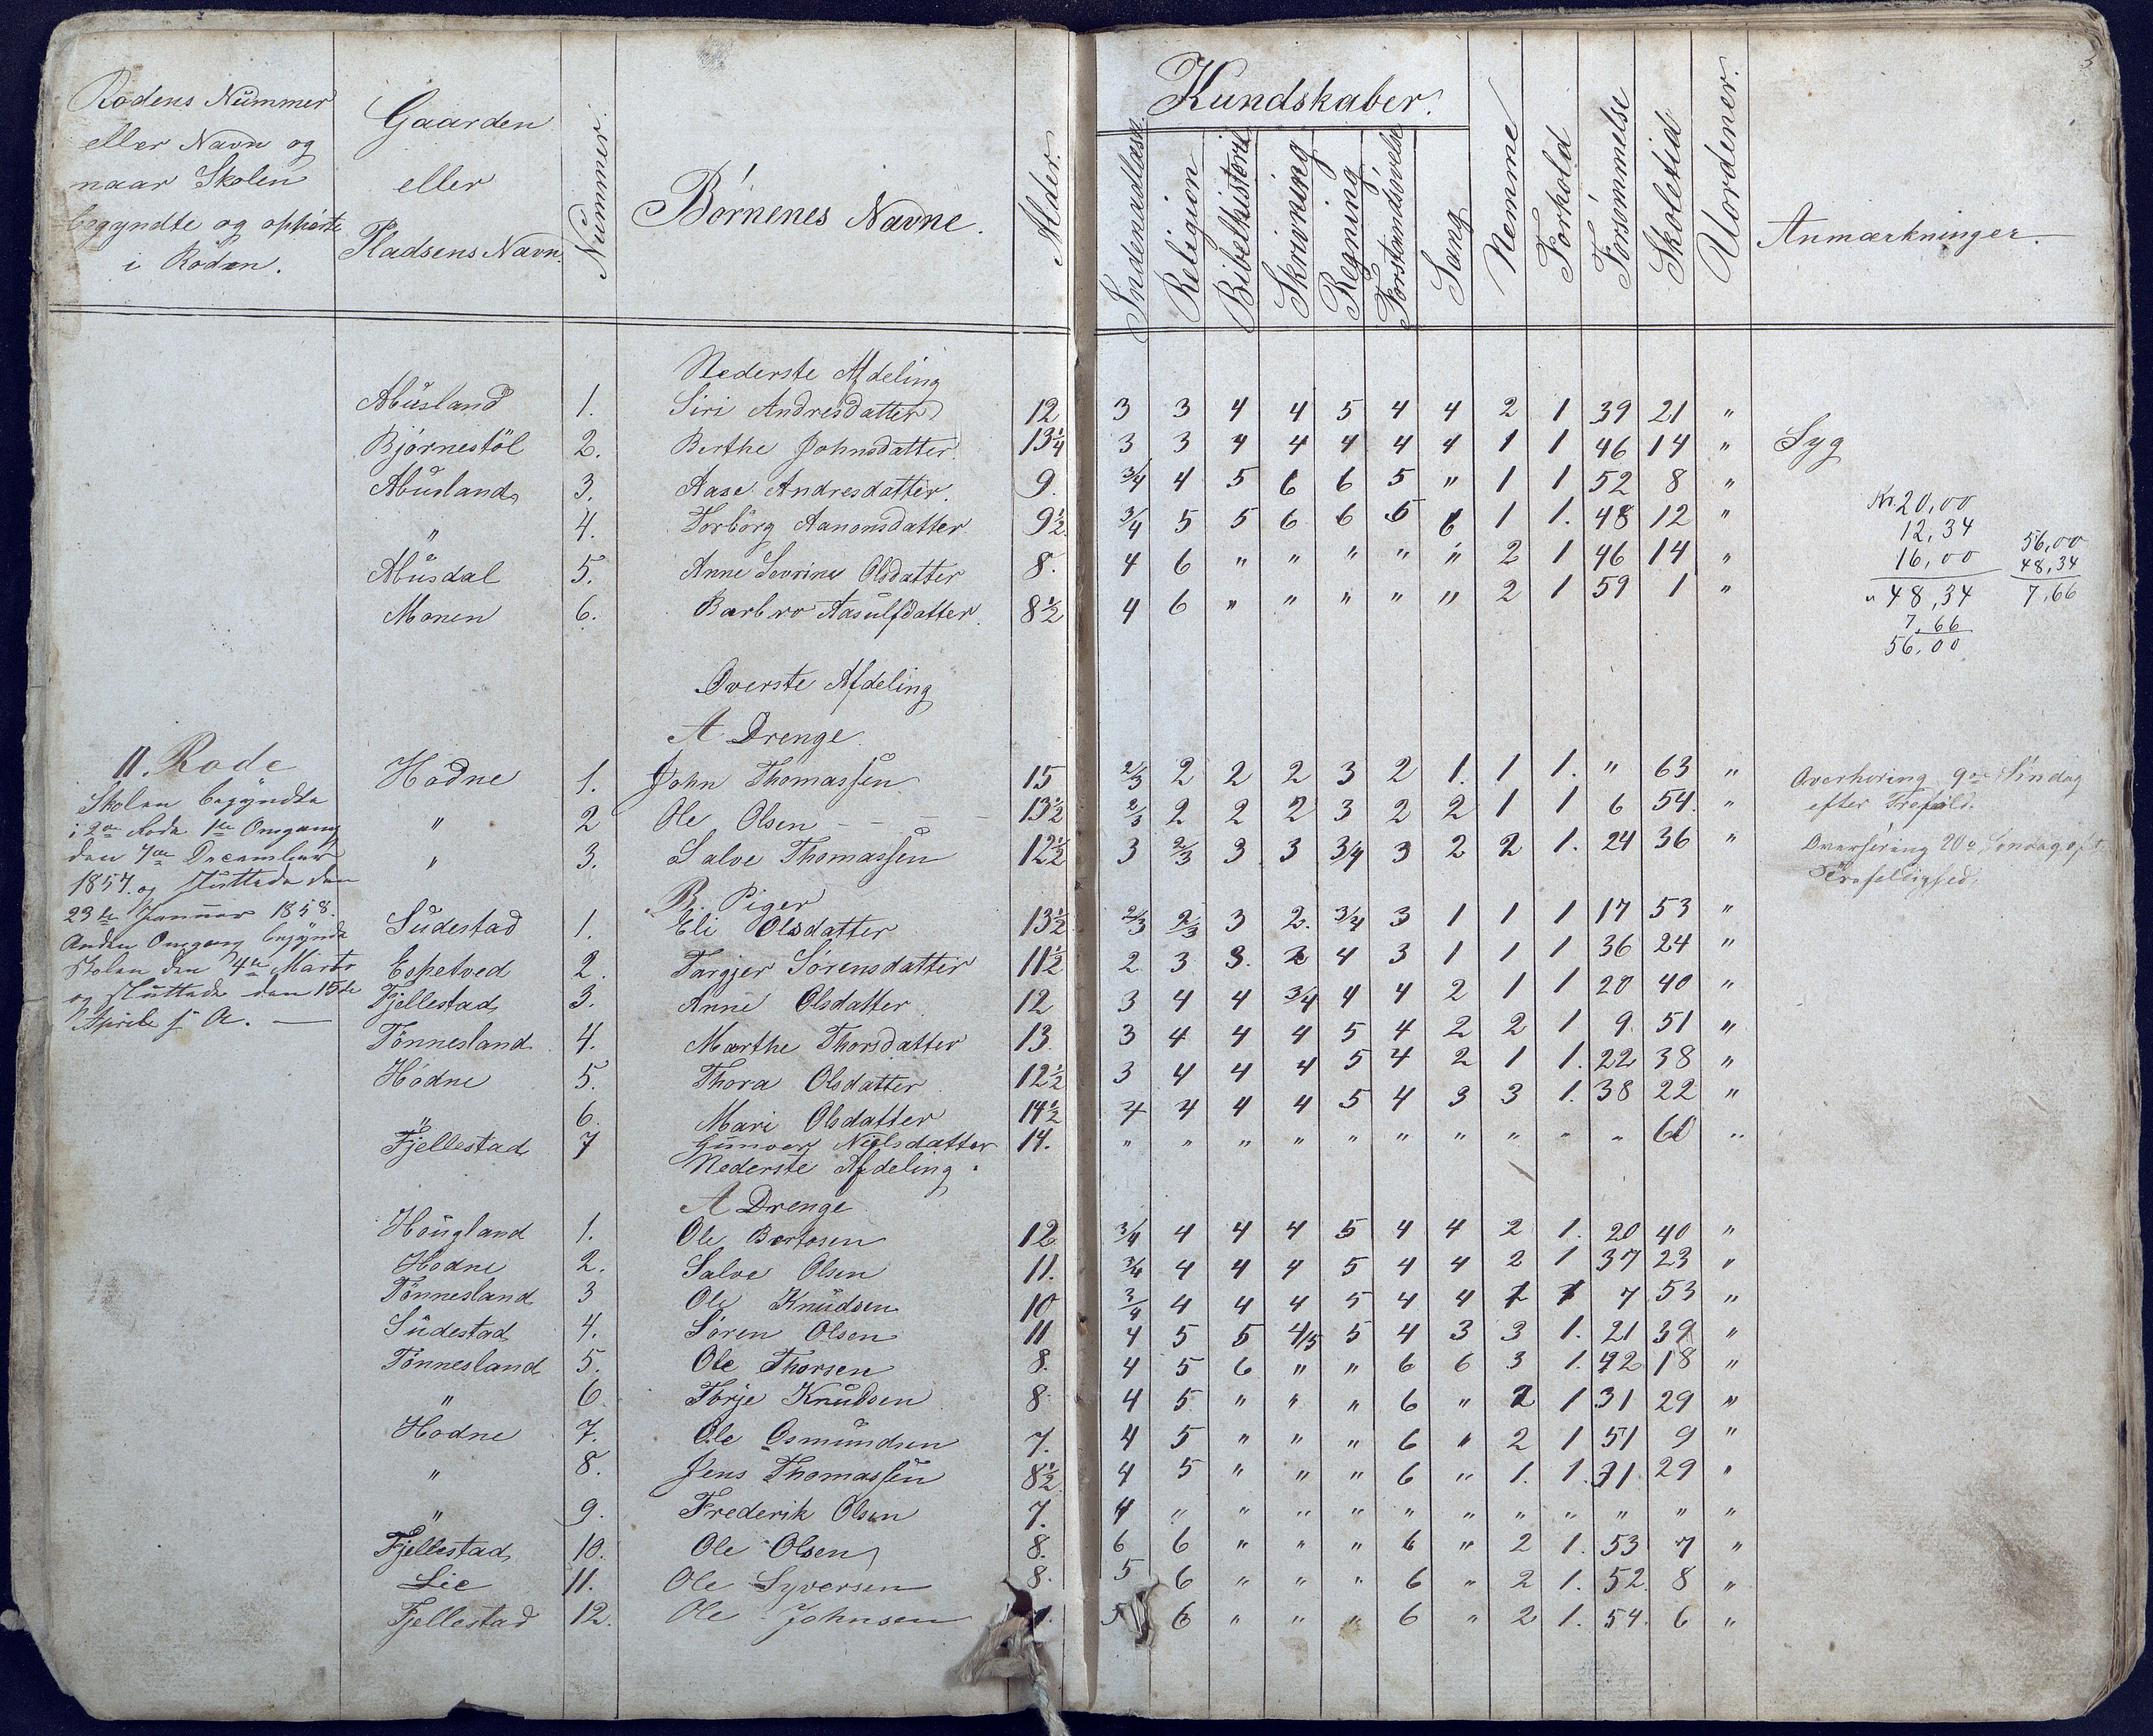 Rodens Nummer
eller Navn og
naar Skolen
begyndte og ophørte
i Roden.
Gaarden
eller
Pladsens Navn.
Nummer.
Børnenes Navne.
Alder.
Kundskaber.
Indenadlæsn.
Religion
Bibelhistorie
Skrivning
Regning
Forstandsøvelse
Sang
Nemme
Forhold
Forsømmelse
Skoletid
Uordener.
Anmærkninger.
Nederste Afdeling
Abusland 1. Siri Andresdatter 12 3 3 4 4 5 4 4 2 1 39 21 "
Bjørnestöl 2. Berthe Johnsdatter 13¼ 3 3 4 4 4 4 4 1 1 46 14 " Syg
Abusland 3. Aase Andresdatter. 9. 3/4 4 5 6 6 5 " 1 1 52 8 "
" 4. Torborg Aanonsdatter 9½ 3/4 5 5 6 6 5 6 1 1. 48 12 "
Abusdal 5. Anne Sevrine Olsdatter 8. 4 6 " " " " " 2 1 46 14 "
Monen 6. Barbro Aasulfdatter. 8½ 4 6 " " " " " 2 1 59 1 "
Kr. 20,00
12,34
16,00
" 48,34
7,66
56,00
56,00
48,34
7,66
Øverste Afdeling
A Drenge
II. Rode
Skolen begyndte
i 2den Rode 1ste Omgang
den 7de December
1857. og sluttede den
23de Januar 1858.
Anden Omgang begyndte
Skolen den 4de Marts
og sluttede den 15de
Aprile s. A. —
Hodne 1. John Thomassen 15 2/3 2 2 2 3 2 1. 1 1. " 63 " Overhøring 9de Søndag
efter Trefold.
" 2 Ole Olsen - - - - 13½ 2/3 2 2 2 3 2 2 1 1 6 54. "
" 3. Salve Thomassen 12½ 3 2/3 3 3 3/4 3 2 2 1. 24 36 " Overhøring 20de Søndag eft.
Trefoldighed.
B. Piger
Sudestad 1. Eli Olsdatter 13½ 2/3 2/3 3 2. 3/4 3 1 1 1 17 53 "
Espetved 2. Targjer Sørensdatter 11½ 2 3 3. 2 4 3 1 1 1 36 24 "
Fjellestad 3. Anne Olsdatter 12 3 4 4 3/4 4 4 2 1 1 20 40 "
Tønnesland 4. Marthe Thorsdatter 13. 3 4 4 4 5 4 2 2 1 9 51 "
Hödne 5. Thora Olsdatter 12½ 3 4 4 4 5 4 2 1 1. 22 38 "
" 6. Mari Olsdatter 14½ 4 4 4 4 5 4 3 3 1. 38 22 "
Fjellestad 7 Gunvor Nielsdatter 14. " " " " " " " " " " 60 "
Nederste Afdeling.
A Drenge
Hougland 1. Ole Bertosen 12 3/4 4 4 4 5 4 4 2 1. 20 40 "
Hodne 2. Salve Olsen 11. 3/4 4 4 4 5 4 4 2 1 37 23 "
Tønnesland 3 Ole Knudsen 10 3/4 4 4 4 5 4 4 1 1 7 53 "
Sudestad 4. Søren Olsen 11 4 5 5 4/5 5 4 3 3 1. 21 39 "
Tønnesland 5. Ole Thorsen 8. 4 5 6 " " 6 6 3 1. 42 18 "
" 6. Torje Knudsen 8 4 5 " " " 6 " 2 1 31 29 "
Hodne 7. Ole Osmundsen 7. 4 5 " " " 6 " 2 1 51 9 "
" 8. Jens Thomassen 8½ 4 5 " " " 6 " 1. 1. 31 29 "
" 9. Frederik Olsen 7. 4 " " " " " " " " " " "
Fjellestad 10. Ole Olsen 8. 6 6 " " " 6 " 2 1. 53 7 "
Lie 11. Ole Syversen 8. 5 6 " " " 6 " 2 1. 52 8 "
Fjellestad 12. Ole Johnsen 5 6 " " " 6 " 2 1. 54 6 "